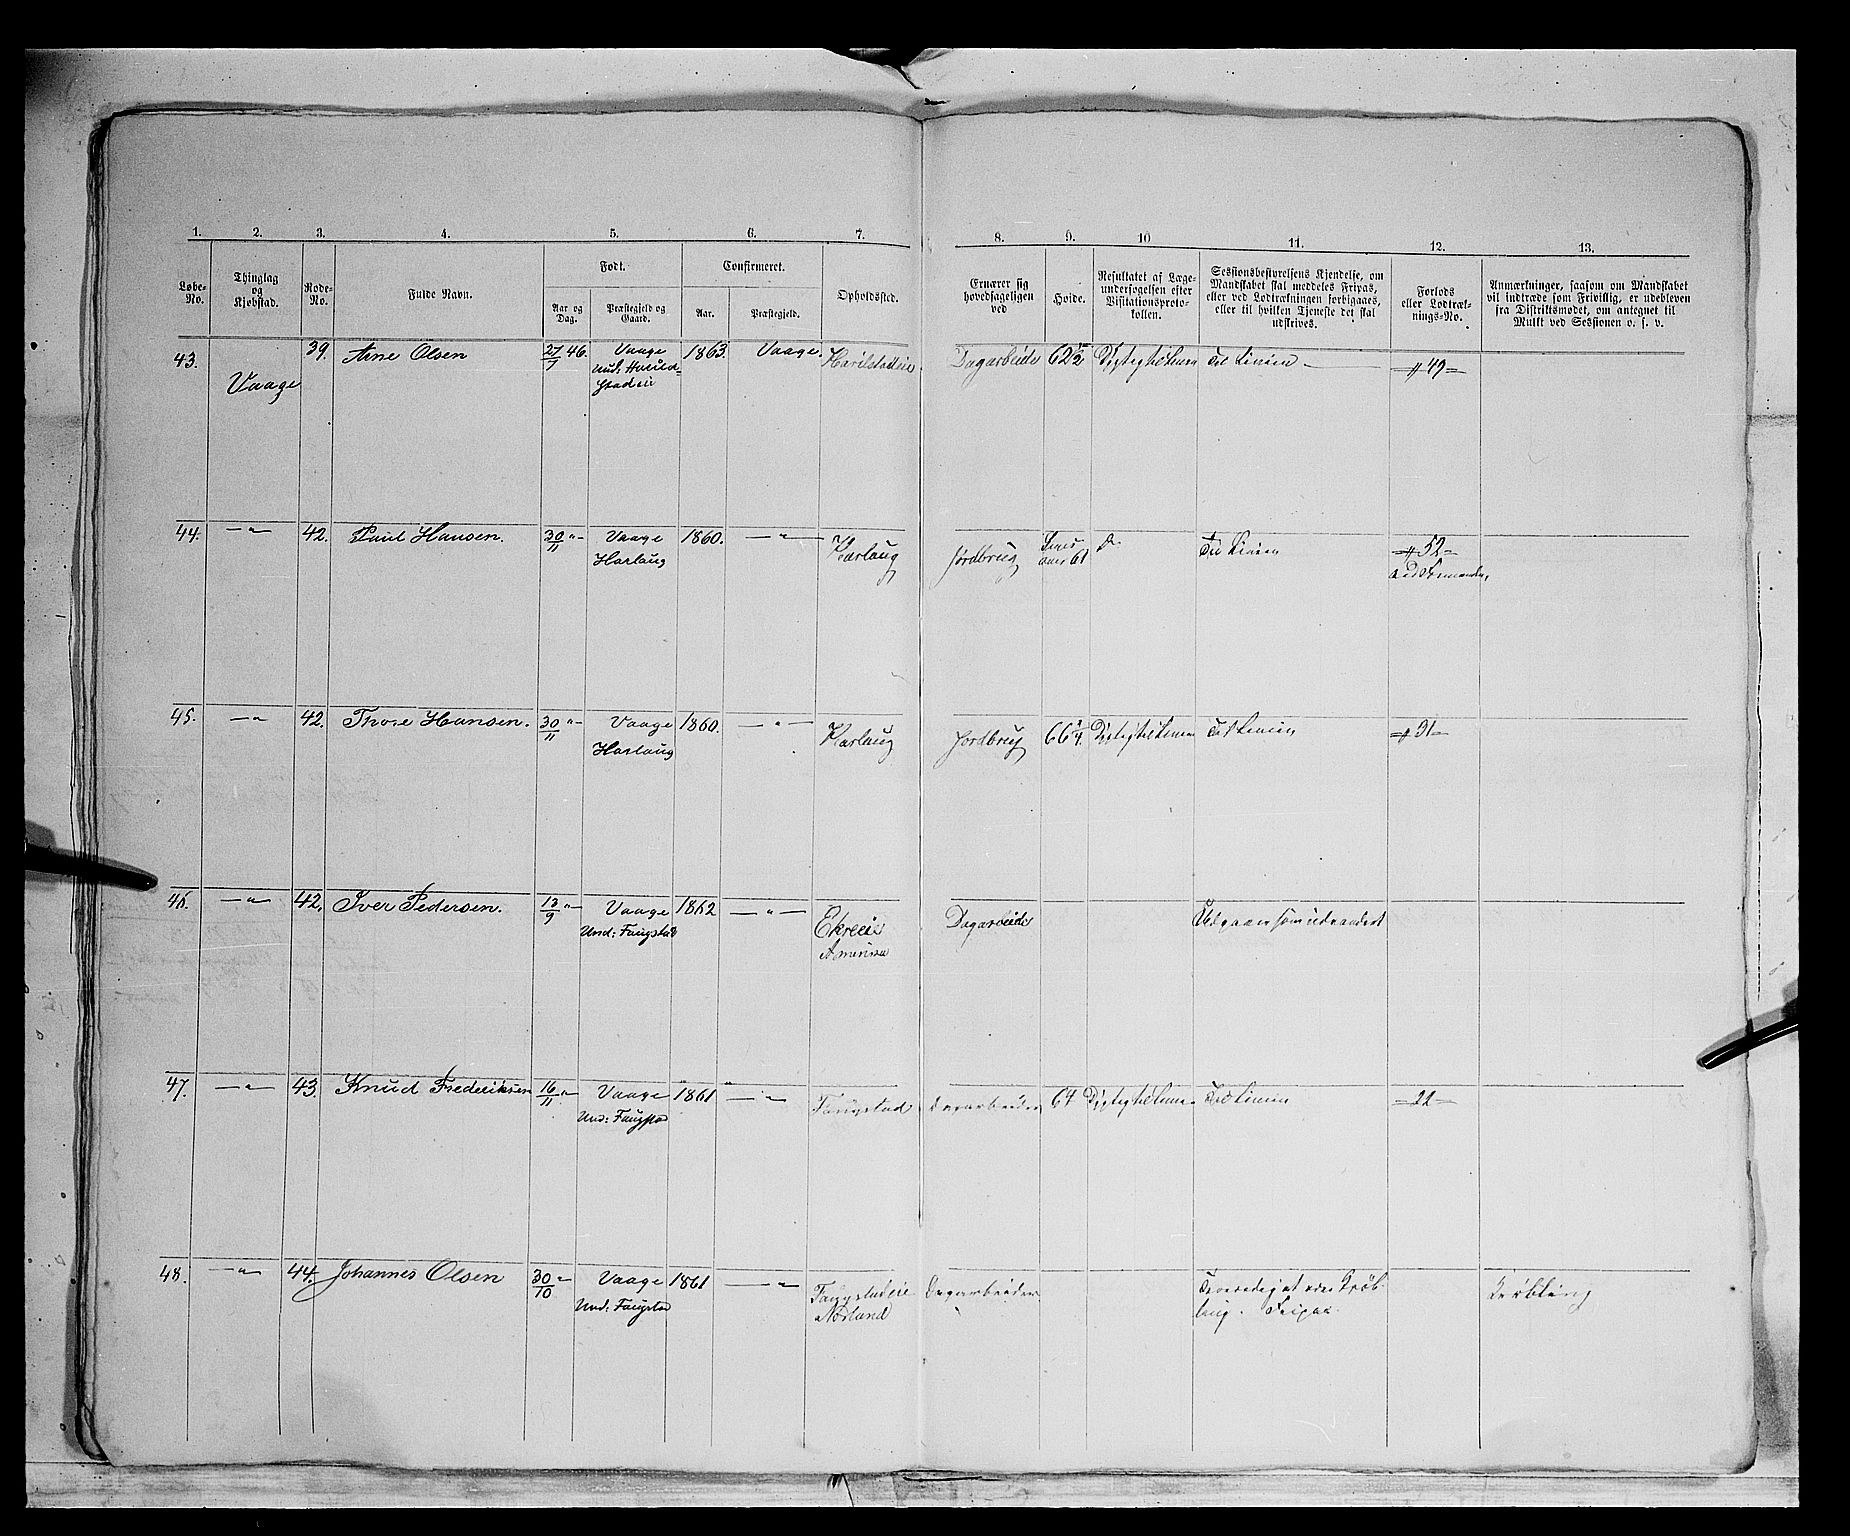 1. 2. 3. 4. 5. 6. 7. 8. 9. 10 11. 12. 13.
Løbe-No. Thinglag og Kjøbstad. Rode-No. Fulde Navn. Født. Aar og Dag. Præstegjeld og Gaard. Confirmeret. Aar. Præstegjeld. Opholdssted.
Ernærer sig hovedsageligen ved Høide. Resultatet af Læge-undersøgelsen efter Visitationsproto-kollen. Sessionsbestyrelsens Kjendelse, om Mandskabet skal meddeles Fripas, eller ved Lodtrækningen forbigaaes, eller til hvilken Tjeneste det skal udskrives. Forlods eller Lodtræk-nings-No. Anmærkninger, saasom om Mandskabet vil indtræde som Frivillig, er udebleven fra Distriktsmødet, om antegnet til Mulkt ved Sessionen o. s. v.
43. Vaage 39. Arne Olsen 27/7 46. Vaage 1863. Vaage. Dagarbeide 62 1/2 Til Linien — 49
44. —"— 42. Paul Hansen. 30/11 "- Vaage 1860. —"— Harlaug Jordbrug 61 Til Linien 52
Harlaug
45. —"— 42. Thore Hansen. 30/11 "- Vaage 1860. —"— Harlaug Jordbrug 66 1/4. Dygtig til Linien Til Linien 31
Harlaug
46. —"— 42. Iver Pedersen. 13/9 "- Vaage 1862 —"— Ekreeie Dagarbeide Udgaaer som udvandret
Und: Faugstad Amerika
47. —"— 43. Knud Frederiksen 16/11 "- Vaage 1861 —"— Faugstad Dagarbeider 64 Dygtig til Linien Til Linien 22
Und: Faugstad
48. —"— 44. Johannes Olsen 30/10 "- Vaage 1861 —"— Faugstadeie Dagarbeider
Und: Faugstad Nørland Fripas